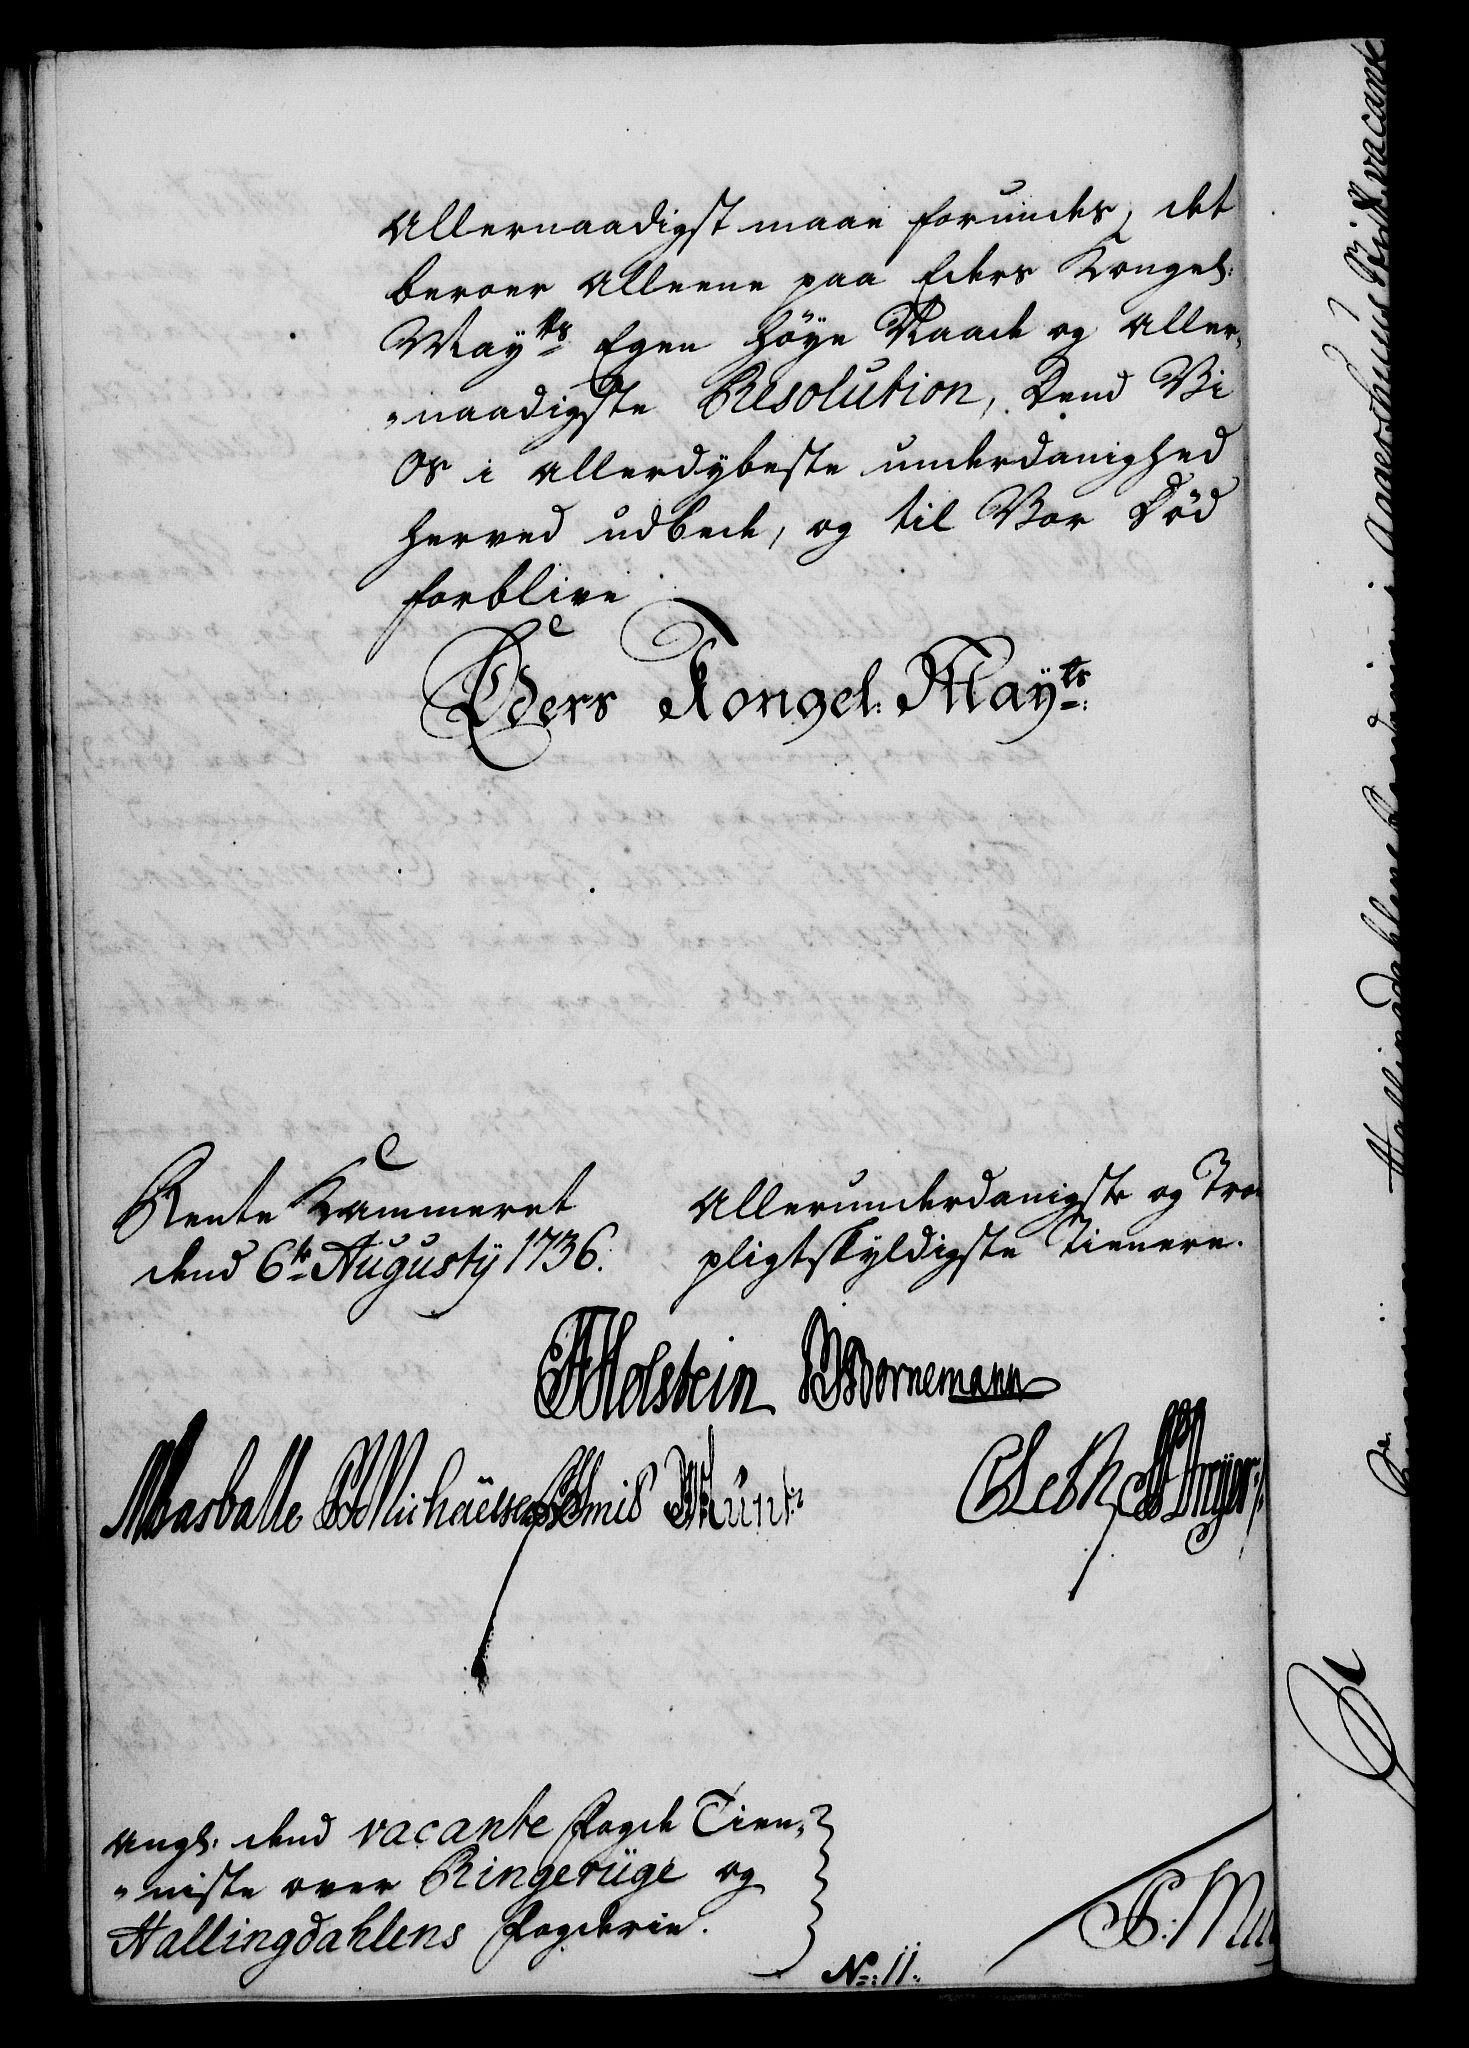 Allernaadigst maae forundes, det
beroer alleene paa Eders Kongel:
Mayts Egen høye Naade og Aller-
„naadigste Resolution, Dend Vi
os i allerdybeste underdanighed
herved udbede, og til Vor Død
forblive
Eders Kongel: Mayts:
Rente Kammeret
dend 6te Augusty 1736.
Allerunderdanigste og Troe
pligtskyldigste Tienere.
Holstein Bornemann
Masballe Michaëlsen Münt
Angl: dend vacante Fogde Tien-
„niste over Ringerüge og
Hallingdahlens Fogderie.
No: 11.
Hallingdahlens Fogderie i Aggershuus Stift vacante